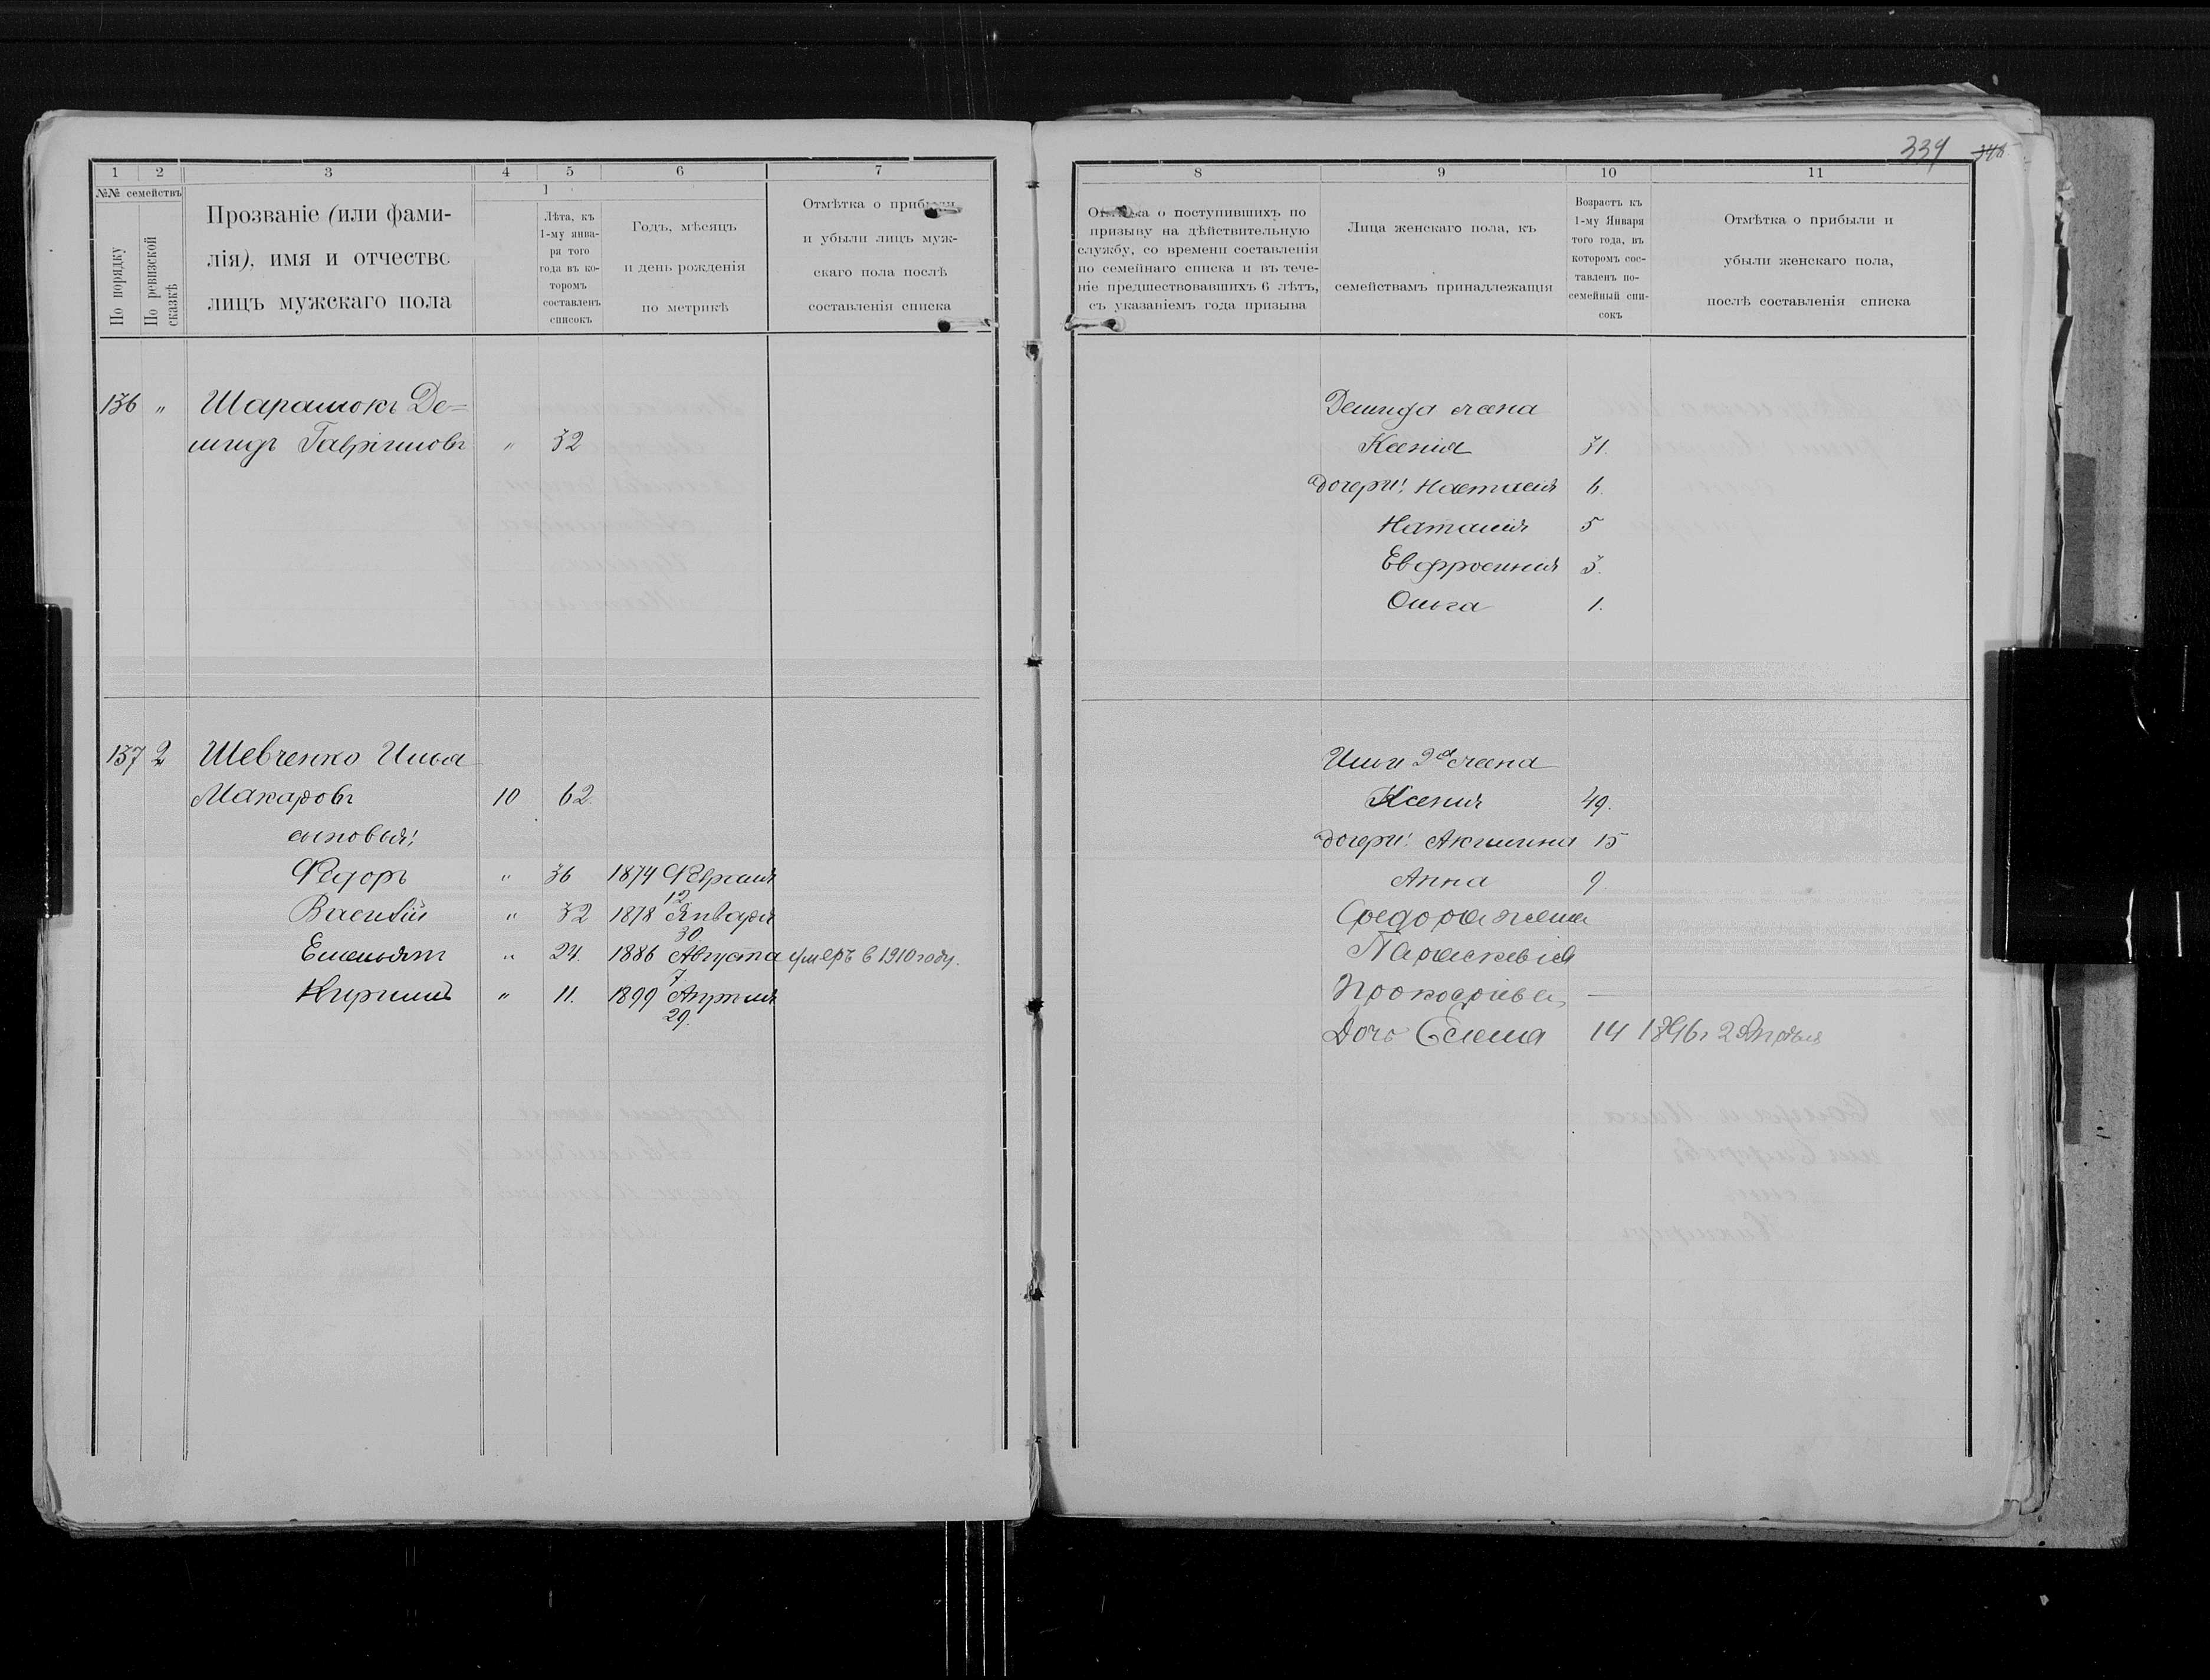 339 345
1 2 3 4 5 6 7
№№ семействъ
По порядку
По ревизской сказкѣ
Прозваніе (или фами-
лія), имя и отчество
лицъ мужскаго пола
1
Лѣта, къ
1-му янва-
ря того
года въ ко-
торомъ
составленъ
списокъ
Годъ, мѣсяцъ
и день рожденія
по метрикѣ
Отмѣтка о прибыли
и убыли лицъ муж-
скаго пола послѣ
составленія списка
136 " Шарашокъ Де=
мидъ Гавріиловъ " 32
137 2 Шевченко Илья
Макаровъ 10 62.
сыновья:
Ѳедоръ " 36 1874 Февраля
12
Василій " 32 1878 Января
30.
Емельянъ " 24. 1886 Августа умеръ в 1910 году.
7
Кириллъ " 11. 1899 Апрѣля
29.
8 9 10 11
Отмѣтка о поступившихъ по
призыву на дѣйствительную
службу, со времени составленія
по семейнаго списка и въ тече-
ніе предшествовавшихъ 6 лѣтъ,
съ указаніемъ года призыва
Лица женскаго пола, къ
семействамъ принадлежащія
Возрастъ къ
1-му Января
того года, въ
которомъ сос-
тавленъ по-
семейный спи-
сокъ
Отмѣтка о прибыли и
убыли женскаго пола,
послѣ составленія списка
Демида жена
Ксенія 31.
дочери: Настасія 6.
Наталія 5
Евфросинія 3.
Ольга 1.
Ильи 2я жена
Ксенія 49.
дочери: Акилина 15
Анна 9.
Федора жена
Параскевія
Прокофіева, —
Дочь Елена 14 1896г 2 Апрѣля